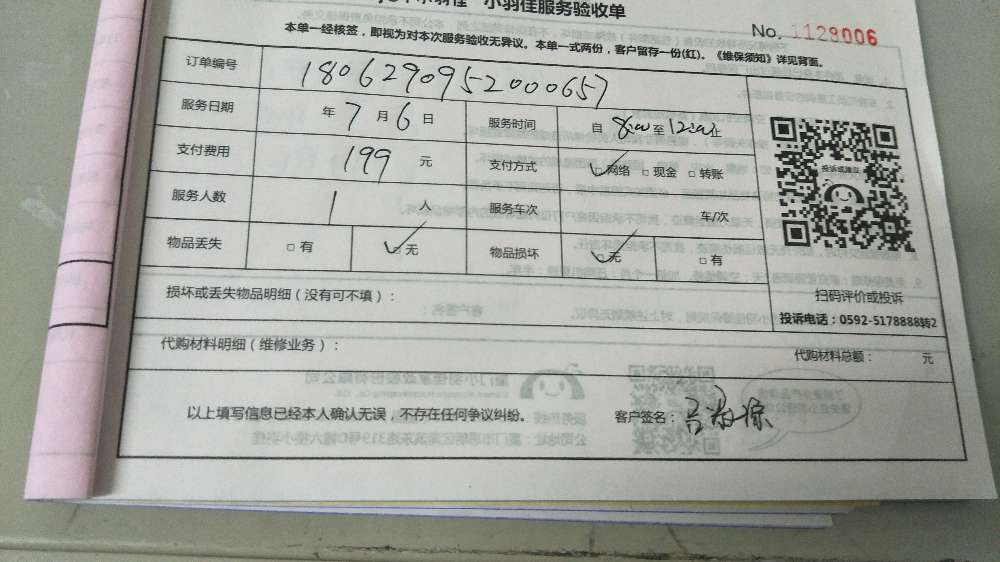 小羽佳服务验收单
No. 1129006
本单一经核签，即视为对本次服务验收无异议。本单一式两份，客户留存一份(红)。《维保须知》详见背面。
订单编号 1806290952000657
服务日期 年 7 月 6 日 服务时间 自 8:00 至 12:00 止
支付费用 199 元 支付方式 ☑网络 □现金 □转账
服务人数 1 人 服务车次 车/次
物品丢失 □有 ☑无 物品损坏 ☑无 □有
投诉或建议
扫码评价或投诉
投诉电话：0592-5178888转2
损坏或丢失物品明细（没有可不填）：
代购材料明细（维修业务）： 代购材料总额： 元
以上填写信息已经本人确认无误，不存在任何争议纠纷。 客户签名：